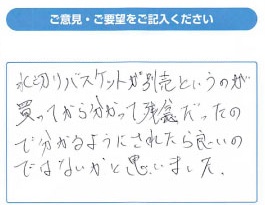 ご意見・ご要望をご記入ください
水切りバスケットが別売というのが
買ってから分かって残念だったの
で分かるようにされたら良いの
ではないかと思いました。